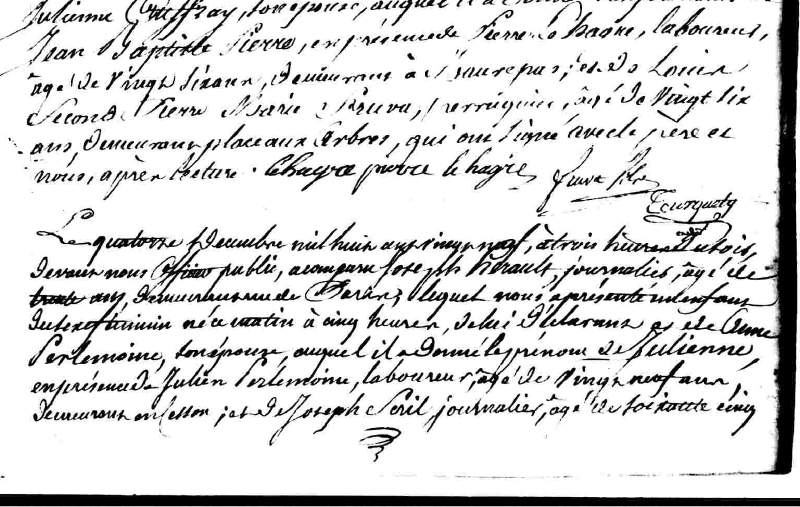 Julienne Gueffray, son épouse, auquel il a donné
Jean Baptiste Pierre, en présence de Pierre Le hagre, laboureur,
âgé de vingt six ans, demeurant à Maurepas, et de Louis
Second Pierre Marie Pruva, perruquier, âgé de vingt six
ans, demeurant place aux Arbres, qui ont signé avec le père et
nous, après lecture.
Le quatorze décembre mil huit cent vingt neuf, à trois heures du soir,
devant nous officier public, a comparu Joseph hérault, journalier, âgé de
trente ans, demeurant rue de lequel nous a présenté un enfant
du sexe féminin né ce matin à cinq heures, de lui déclarant et de Anne
Perlemoine, son épouse, auquel il a donné le prénom de Julienne,
en présence de Julien Perlemoine, laboureur, âgé de vingt neuf ans,
demeurant en Cesson, et de Joseph Soril, journalier, âgé de soixante cinq